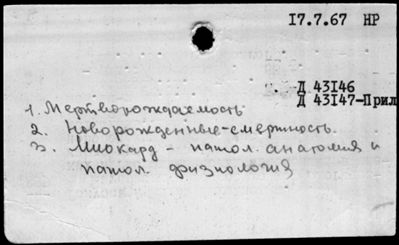 17.7.67 НР
Д 43146
Д 43147-Прил
1. Мертворождаемость
2. Новорожденные-смертность.
3. Миокард - патол. анатомия и
патол. физиология